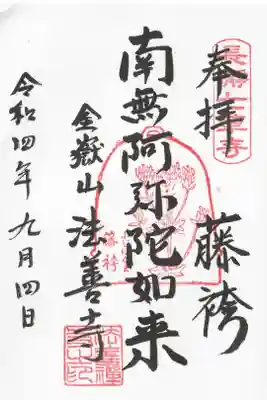 奉拝 藤袴
南無阿弥陀如来
金嶽山 法善寺
令和四年九月四日
藤袴